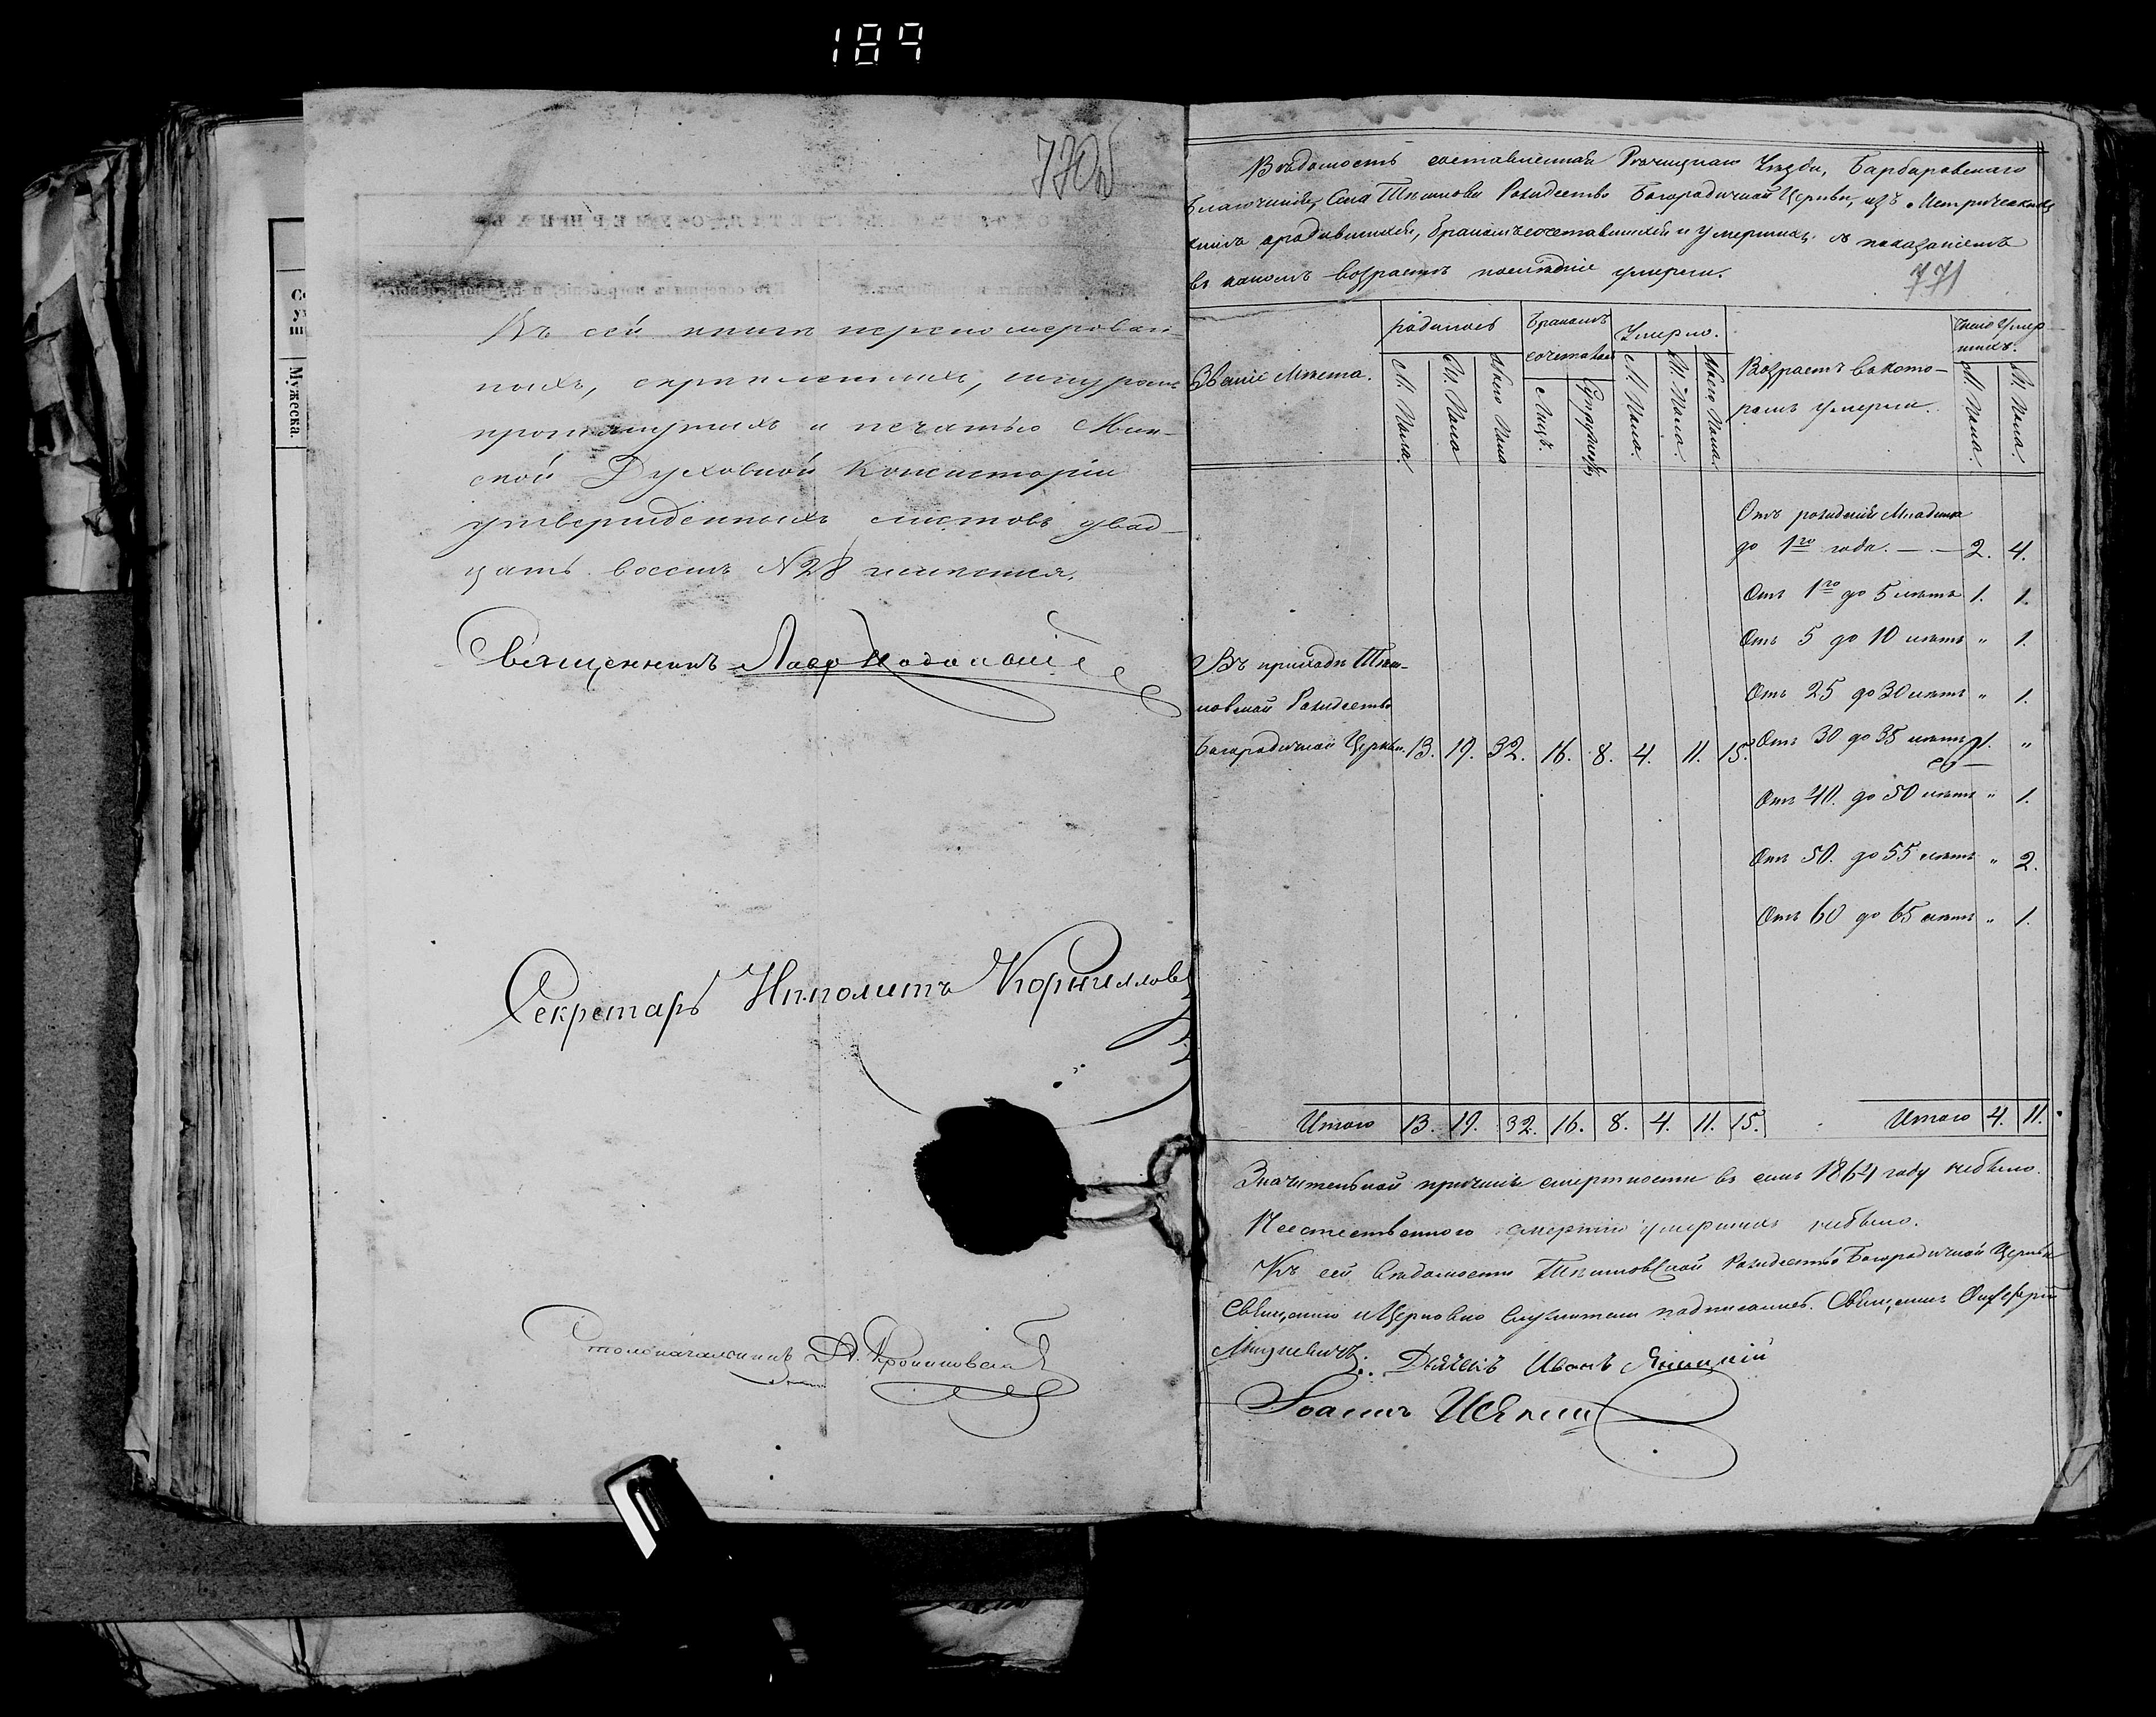 189
770об
Въ сей книгѣ перенумерован-
ныхъ, скрѣпленныхъ, шнуромъ
протянутыхъ и печатью Мин-
ской Духовной Консисторіи
утвержденныхъ листовъ двад-
цать восемь №28 имѣется.
Священникъ
Секретарь Ипполитъ Корниллов
Столоначальникъ
Мужеска.
Вѣдомость составленная Рѣчицкаго Уѣзда, Барбаровскаго
Благочинія, Села Рождество Богородичной Церкви, изъ Метрическихъ
книгъ о родившихся, бракомъ сочетавшихся и умершихъ съ показаніемъ
въ какомъ возрастѣ послѣдніе умерли.
771
Званіе Мѣста.
родилось
М. Пола.
Ж. Пола
Обоего Пола
Бракомъ
сочеталось
Лицъ.
Супружествъ
Умерло.
М. Пола.
Ж. Пола.
Обоего Пола.
Возрастъ въ кото-
ромъ умерли.
Число Умер
шихъ.
М. Пола.
Ж. Пола.
Отъ рожденія Младенца
до 1го года. — — 2. 4.
Отъ 1го до 5 лѣтъ 1. 1.
Отъ 5 до 10 лѣтъ „ 1.
Отъ 25 до 30 лѣтъ „ 1.
Отъ 30 до 35 лѣтъ 1. „
Отъ 40. до 50 лѣтъ „ 1.
Отъ 50. до 55 лѣтъ „ 2.
Отъ 60 до 65 лѣтъ „ 1.
Въ приходѣ
Рождество
Богородичной Церкви. 13. 19. 32. 16. 8. 4. 11. 15.
Итого 13. 19. 32. 16. 8. 4. 11. 15. Итого 4. 11.
Значительной причины смертности въ семъ 1864 году небыло.
Неестественного смертію умершихъ небыло.
Къ сей вѣдомости Рождество Богородичной Церкви
Священно и Церковно Служители подписались. Священникъ
Дьячекъ Иванъ
Іоаннъ